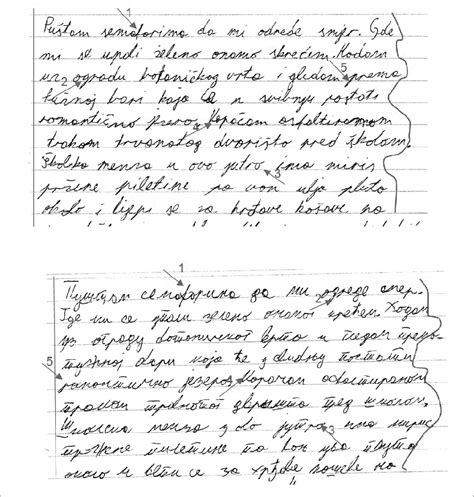 1
Puštam semaforima da mi odrede smjer. Gde
mi se upali zeleno onamo skrećem. Hodam
uz ogradu botaničkog vrta i gledam prema
2
5
tužnoj bari koja će u svibnju postati
romantično jezero. Koračam asfaltiranom
4
trakom travnatog dvorišta pred školom.
Školska menza u ovo jutro ima miris
3
pržene piletine pa von ulja pluta
okolo i lijepi se za hrđave košave na
1
Пуштам семафорима да ми одреде смјер.
Где ми се упали зелено онамо скрећем. Ходам
уз ограду ботаничког врта и гледам према
тужној бари која ће у свибњу постати
5
романтично језеро. Корачам асфалтираном
траком травнатог дворишта пред школом.
Школска менза у ово јутро има мирис
3
пржене пилетине па вон уља плута
около и лепи се за хрђаве кошеве на